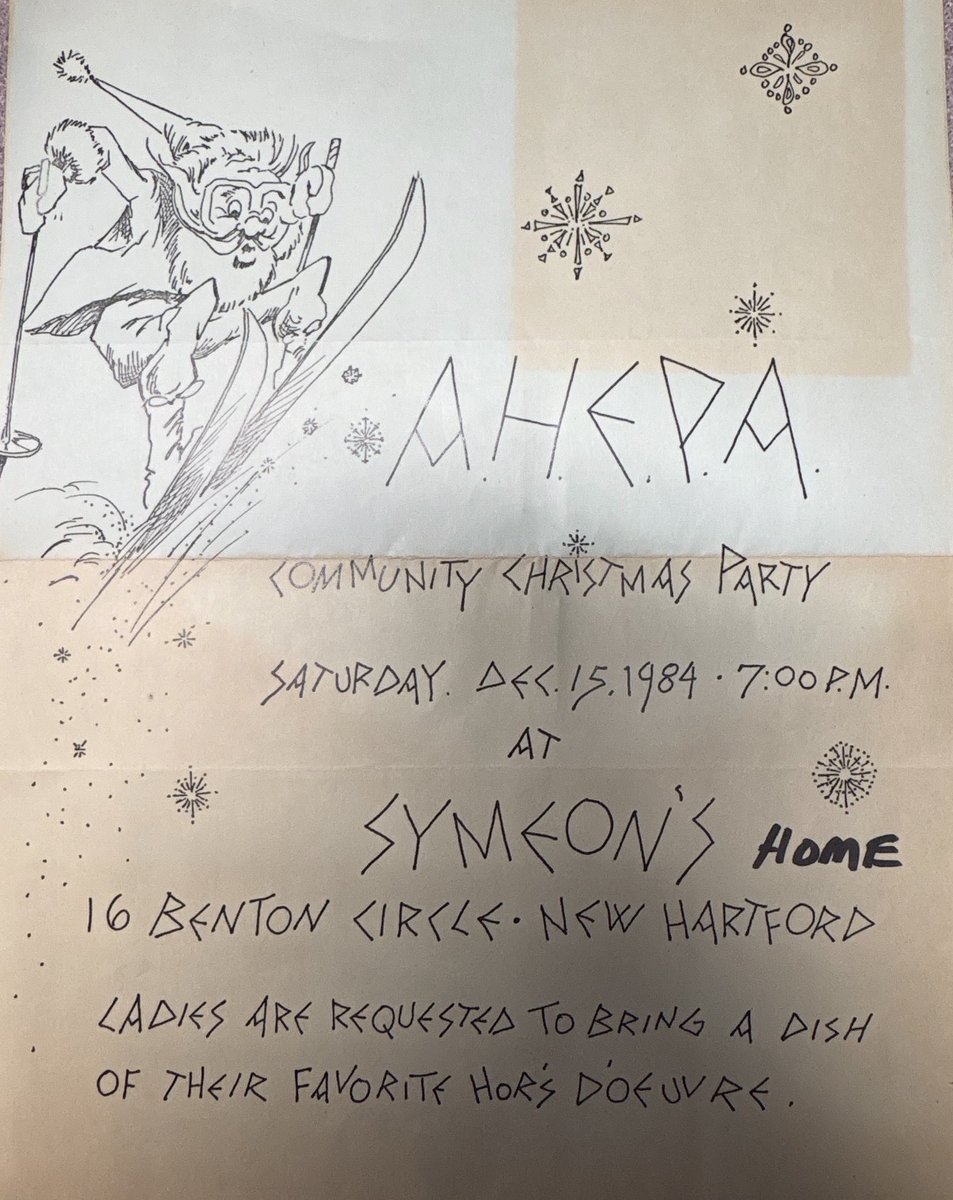 A.H.E.P.A.
COMMUNITY CHRISTMAS PARTY
SATURDAY. DEC. 15. 1984 · 7:00 P.M.
AT
SYMEON'S HOME
16 BENTON CIRCLE · NEW HARTFORD
LADIES ARE REQUESTED TO BRING A DISH
OF THEIR FAVORITE HOR'S D'OEUVRE.